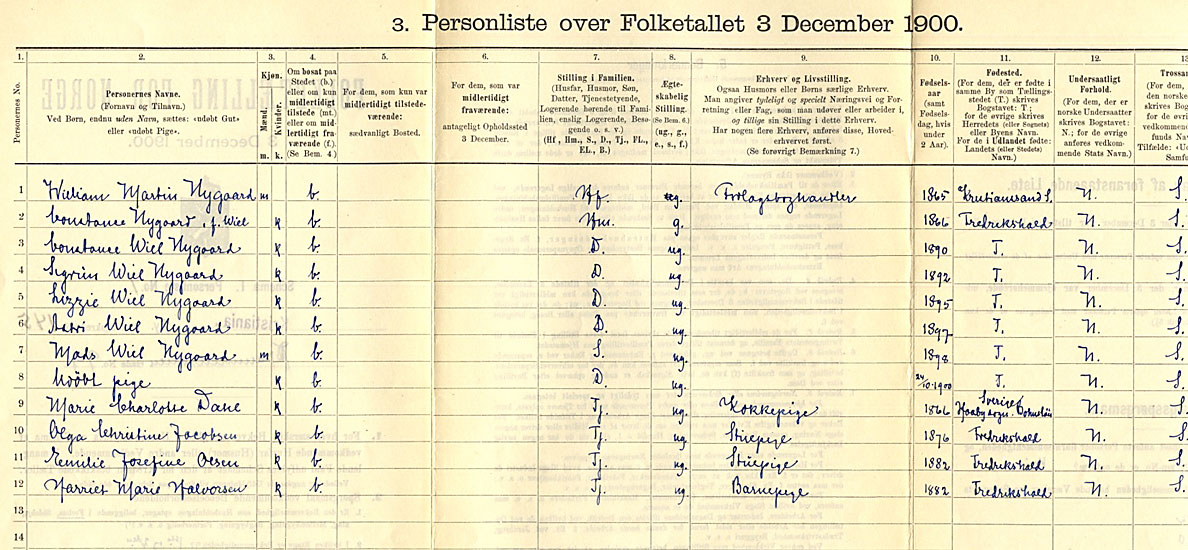 3. Personliste over Folketallet 3 December 1900.
1. 2. 3. 4. 5. 6. 7. 8. 9. 10. 11. 12. 13.
Personernes No.
Personernes Navne.
(Fornavn og Tilnavn.)
Ved Børn, endnu uden Navn, sættes: «udøbt Gut»
eller «udøbt Pige».
Kjøn.
Mænd. Kvinder.
m. k.
Om bosat paa
Stedet (b.)
eller om kun
midlertidigt
tilstede (mt.)
eller om mid-
lertidigt fra-
værende (f.).
(Se Bem. 4.)
For dem, som kun var
midlertidigt tilstede-
værende:
sædvanligt Bosted.
For dem, som var
midlertidigt
fraværende:
antageligt Opholdssted
3 December.
Stilling i Familien.
(Husfar, Husmor, Søn,
Datter, Tjenestetyende,
Logerende hørende til Fami-
lien, enslig Logerende, Besø-
gende o. s. v.)
(Hf, Hm., S., D., Tj., FL.,
EL., B.)
Ægte-
skabelig
Stilling.
(Se Bem. 6.)
(ug., g.,
e., s., f.)
Erhverv og Livsstilling.
Ogsaa Husmors eller Børns særlige Erhverv.
Man angiver tydeligt og specielt Næringsvei og For-
retning eller Fag, som man udøver eller arbeider i,
og tillige sin Stilling i dette Erhverv.
Har nogen flere Erhverv, anføres disse, Hoved-
erhvervet først.
(Se forøvrigt Bemærkning 7.)
Fødsels-
aar
(samt
Fødsels-
dag, hvis
under
2 Aar).
Fødested.
(For dem, der er fødte i
samme By som Tællings-
stedet (T.) skrives
Bogstavet: T.;
for de øvrige skrives
Herredets (eller Sognets)
eller Byens Navn.
For de i Udlandet fødte:
Landets (eller Stedets)
Navn.)
Undersaatligt
Forhold.
(For dem, der er
norske Undersaatter
skrives Bogstavet:
N.; for de øvrige
anføres vedkom-
mende Stats Navn.)
Trossa
(For dem,
den norske
skrives Bog
S.; for de
vedkommen
funds Nav
Tilfælde: «Ud
Samfu
1 William Martin Nygaard m b. Hf. ug. Forlagsboghandler 1865 Kristianssand S. N. S.
2 Constance Nygaard, f. Wiel k b. Hm. g. 1866 Fredrikshald N. S.
3 Constance Wiel Nygaard k b. D. ug. 1890 T. N. S.
4 Sigrun Wiel Nygaard k b. D. ug. 1892 T. N. S.
5 Lizzie Wiel Nygaard k b. D. ug. 1895 T. N. S.
6 Wiel Nygaard k b. D. ug. 1897 T. N. S.
7 Mads Wiel Nygaard m b. S. ug. 1898 T. N. S.
8 Udøbt pige k b. D. ug. 24/10.1900 T. N. S.
9 Marie Charlotte Dane k b. Tj. ug. Kokkepige 1866 Sverige N. S.
10 Olga Christine Jacobsen k b. Tj. ug. Stuepige 1876 Fredrikshald N. S.
11 Emilie Josefine Olsen k b. Tj. ug. Stuepige 1882 Fredrikshald N. S.
12 Harriet Marie Halvorsen k b. Tj. ug. Barnepige 1882 Fredrikshald N. S.
13
14